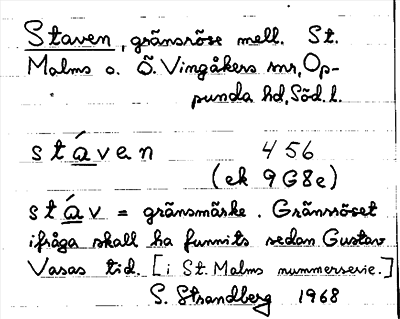 Staven, gränsröse mell. St.
Malms o. Ö. Vingåkers snr, Op-
punda hd, Söd. l.
stáven 456
(ek 9G8e)
stáv = gränsmärke. Gränsröset
ifråga skall ha funnits sedan Gustav
Vasas tid. [i St. Malms nummerserie.]
S. Strandberg 1968